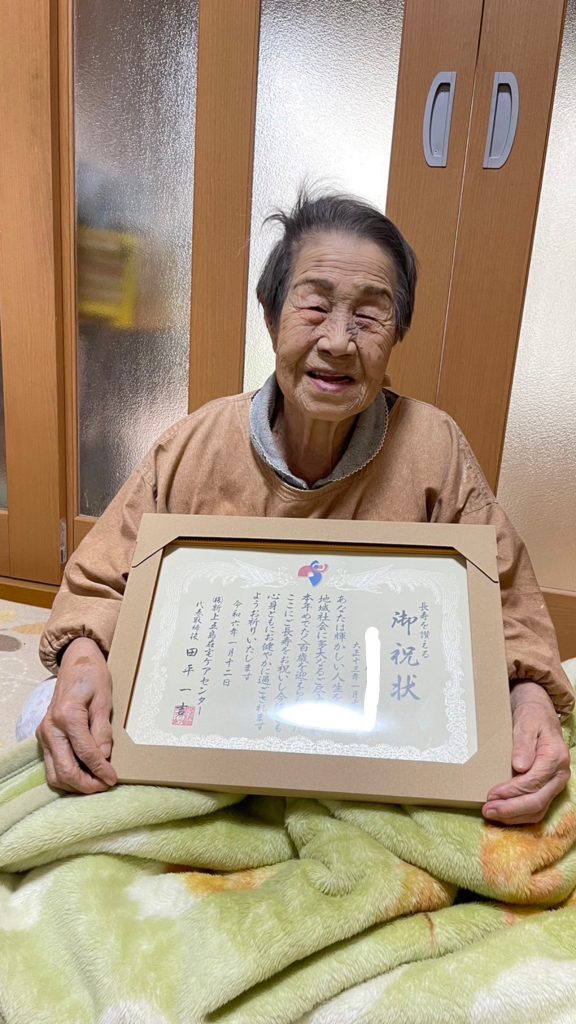 長寿を讃える
御祝状
大正十三年一月十
あなたは輝かしい人生
地域社会に多大なるご尽
本年めでたく百歳を迎え
ここにご長寿をお祝いし
心身ともにお健やかに過ごされます
ようお祈りいたします
令和六年一月十二日
㈱新上五島在宅ケアセンター
代表取締役 田平一吉